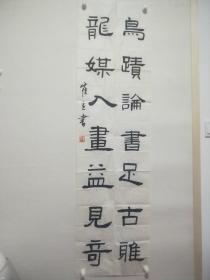 鳥蹟論書足古雅
龍媒入畫益見奇